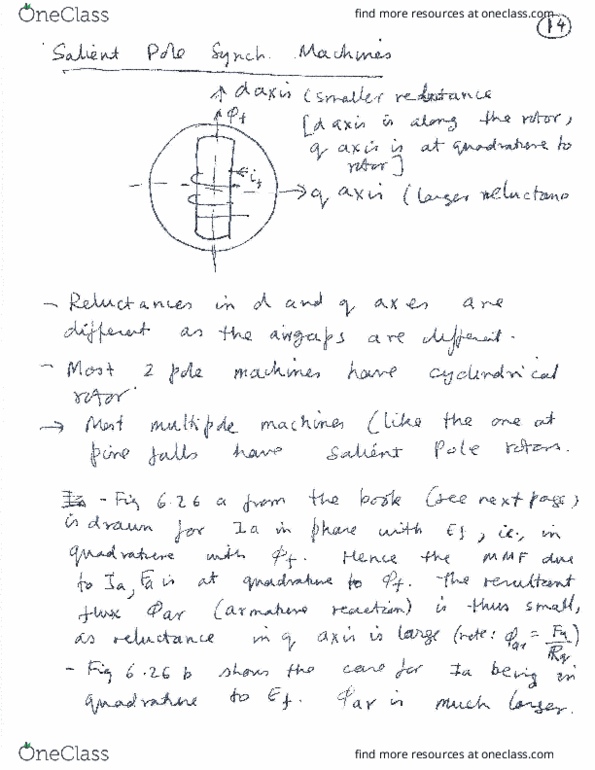 OneClass
find more resources at oneclass.com
14
Salient Pole Synch. Machines
d axis (smaller reluctance
Φf
[d axis is along the rotor,
q axis is at quadrature to
rotor]
if
q axis (larger reluctanc
- Reluctances in d and q axes are
different as the airgaps are different.
- Most 2 pole machines have cylindrical
rotor.
→ Most multipole machines (like the one at
pine falls have Salient Pole rotors.
- Fig 6.26 a from the book (see next page)
is drawn for Ia in phase with Ef, ie., in
quadrature with Φf. Hence the MMF due
to Ia, Fa is at quadrature to Φf. The resultant
flux Φar (armature reaction) is thus small,
as reluctance in q axis is large (note: Φar = Fa/Rq)
- Fig 6.26 b shows the case for Ia being in
quadrature to Ef. Φar is much larger.
OneClass
find more resources at oneclass.com